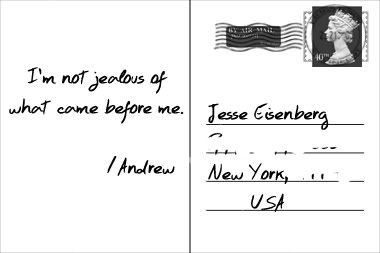 I'm not jealous of
what came before me.
/Andrew
BY AIR MAIL
Jesse Eisenberg
New York,
USA